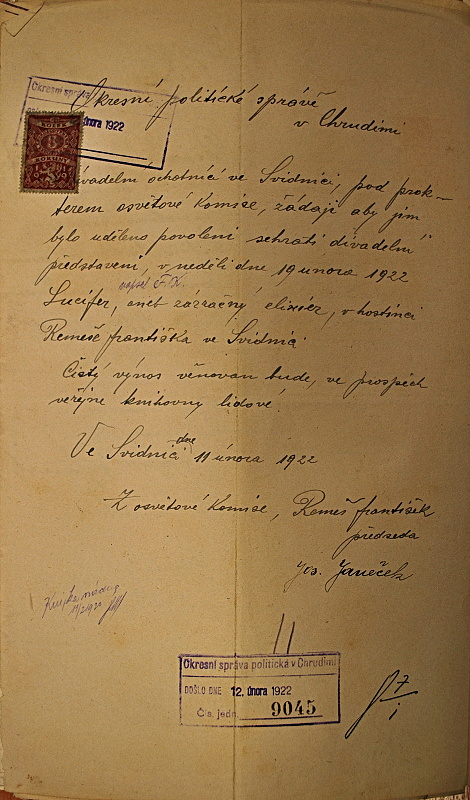 Okresní správa
února 1922
Okresní politické správě
v Chrudimi
KOLEK
KORUNY
Divadelní ochotníci ve Svídnici, pod prok-
terem osvětové komise, žádají aby jim
bylo uděleno povolení sehráti divadelní
představení, v neděli dne 19 února 1922
napsal F.
Lucifer, aneb zázračný elixír, v hostinci
Remeše Františka ve Svídnici
Čistý výnos věnován bude, ve prospěch
veřejné knihovny lidové.
Ve Svídnici dne 11 února 1922
Z osvětové komise, Remeš František
předseda
Jos. Janeček
11
Okresní správa politická v Chrudimi
DOŠLO DNE 12. února 1922
Čís. jedn. 9045
7
I